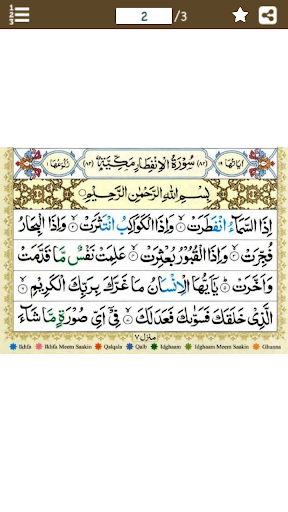 2 /3
اياتها ١٩ (٨٢) سُوْرَةُ الْاِنْفِطَارِ مَكِّيَّةٌ (٨٢) رُكُوْعُهَا ١
بِسْمِ اللّٰهِ الرَّحْمٰنِ الرَّحِيْمِ
اِذَا السَّمَآءُ انْفَطَرَتْ ۙ وَاِذَا الْكَوَاكِبُ انْتَثَرَتْ ۙ وَاِذَا الْبِحَارُ
فُجِّرَتْ ۙ وَاِذَا الْقُبُوْرُ بُعْثِرَتْ ۙ عَلِمَتْ نَفْسٌ مَّا قَدَّمَتْ
وَاَخَّرَتْ ؕ يٰۤاَيُّهَا الْاِنْسَانُ مَا غَرَّكَ بِرَبِّكَ الْكَرِيْمِ ۙ
الَّذِيْ خَلَقَكَ فَسَوّٰىكَ فَعَدَلَكَ ۙ فِيْۤ اَيِّ صُوْرَةٍ مَّا شَآءَ
منزل ٧
Ikhfa Ikhfa Meem Saakin Qalqala Qalb Idghaam Idghaam Meem Saakin Ghunna